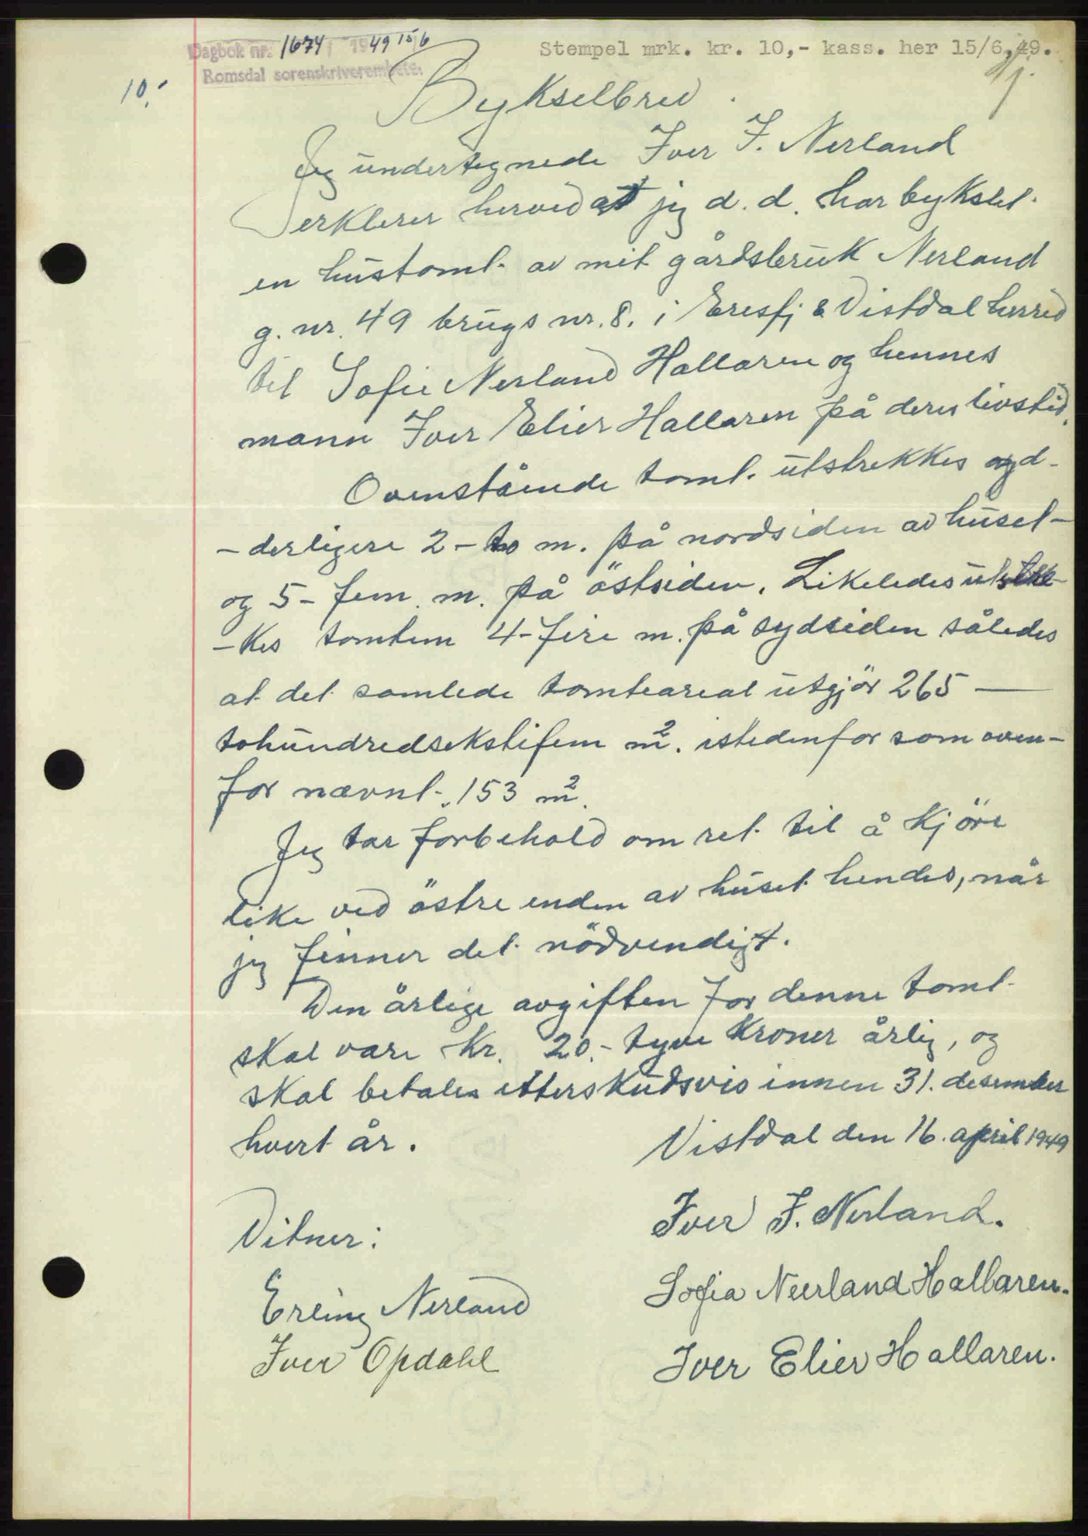 Dagbok nr. 1674 1949 15/6 Stempel mrk. kr. 10,- kass. her 15/6.49.
Romsdal sorenskriverembete.
10,-
Bykselbrev.
Jeg undertegnede Iver I. Nerland
erklerer herved at jeg d.d. har bykslet
en hustomt av mit gårdsbruk Nerland
g. nr. 49 brugs nr. 8. i Eresfj & Vistdal herred
til Sofie Nerland Hallaren og hennes
mann Iver Elier Hallaren på deres livstid.
Ovenstående tomt utstrekkes yd-
-derligere 2 - to m. på nordsiden av huset -
og 5 - fem m. på östsiden. Likeledes utstrek-
-kes tomten 4 - fire m. på sydsiden således
at det samlede tomteareal utgjör 265 —
tohundredsekstifem m². istedenfor som oven-
for nævnt. 153 m².
Jeg tar forbehold om ret til å kjöre
like ved östre enden av huset hendes, når
jeg finner det nödvendigt.
Den årlige avgiften for denne tomt
skal være Kr. 20.- tyve kroner årlig, og
skal betales etterskudsvis innen 31. desember
hvert år.
Vistdal den 16. april 1949
Vitner:
Iver I. Nerland.
Erling Nerland
Sofia Neerland Hallaren.
Iver Opdahl
Iver Elier Hallaren.